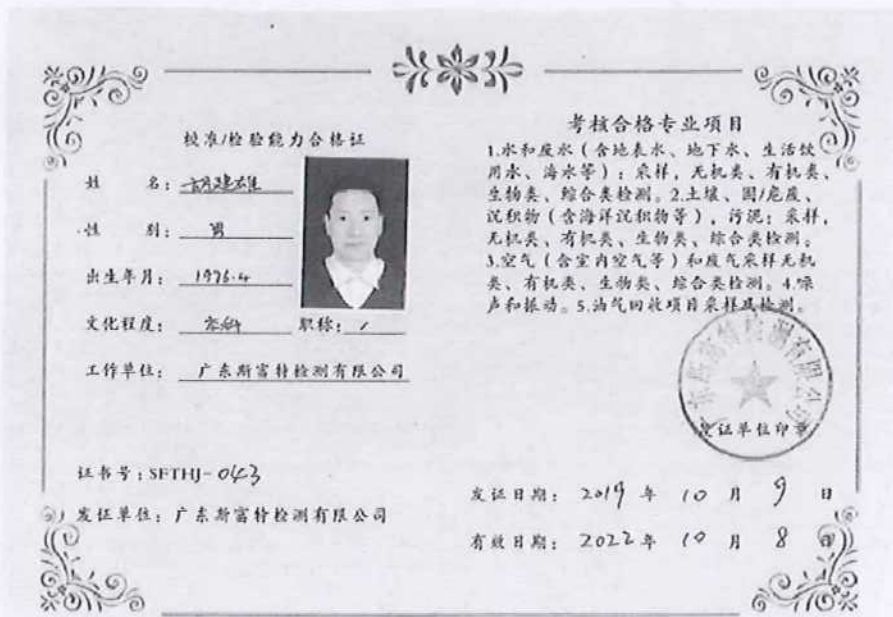 校准/检验能力合格证
姓 名：胡建雄
性 别：男
出生年月：1976.4
文化程度：本科 职称：/
工作单位：广东斯富特检测有限公司
证书号：SFTHJ-043
发证单位：广东斯富特检测有限公司
考核合格专业项目
1.水和废水（含地表水、地下水、生活饮
用水、海水等）：采样，无机类、有机类、
生物类、综合类检测。2.土壤、固/危废、
沉积物（含海洋沉积物等），污泥：采样，
无机类、有机类、生物类、综合类检测。
3.空气（含室内空气等）和废气采样无机
类、有机类、生物类、综合类检测。4.噪
声和振动。5.油气回收项目采样及检测。
广东斯富特检测有限公司
发证单位印章
发证日期：2019 年 10 月 9 日
有效日期：2022 年 10 月 8 日